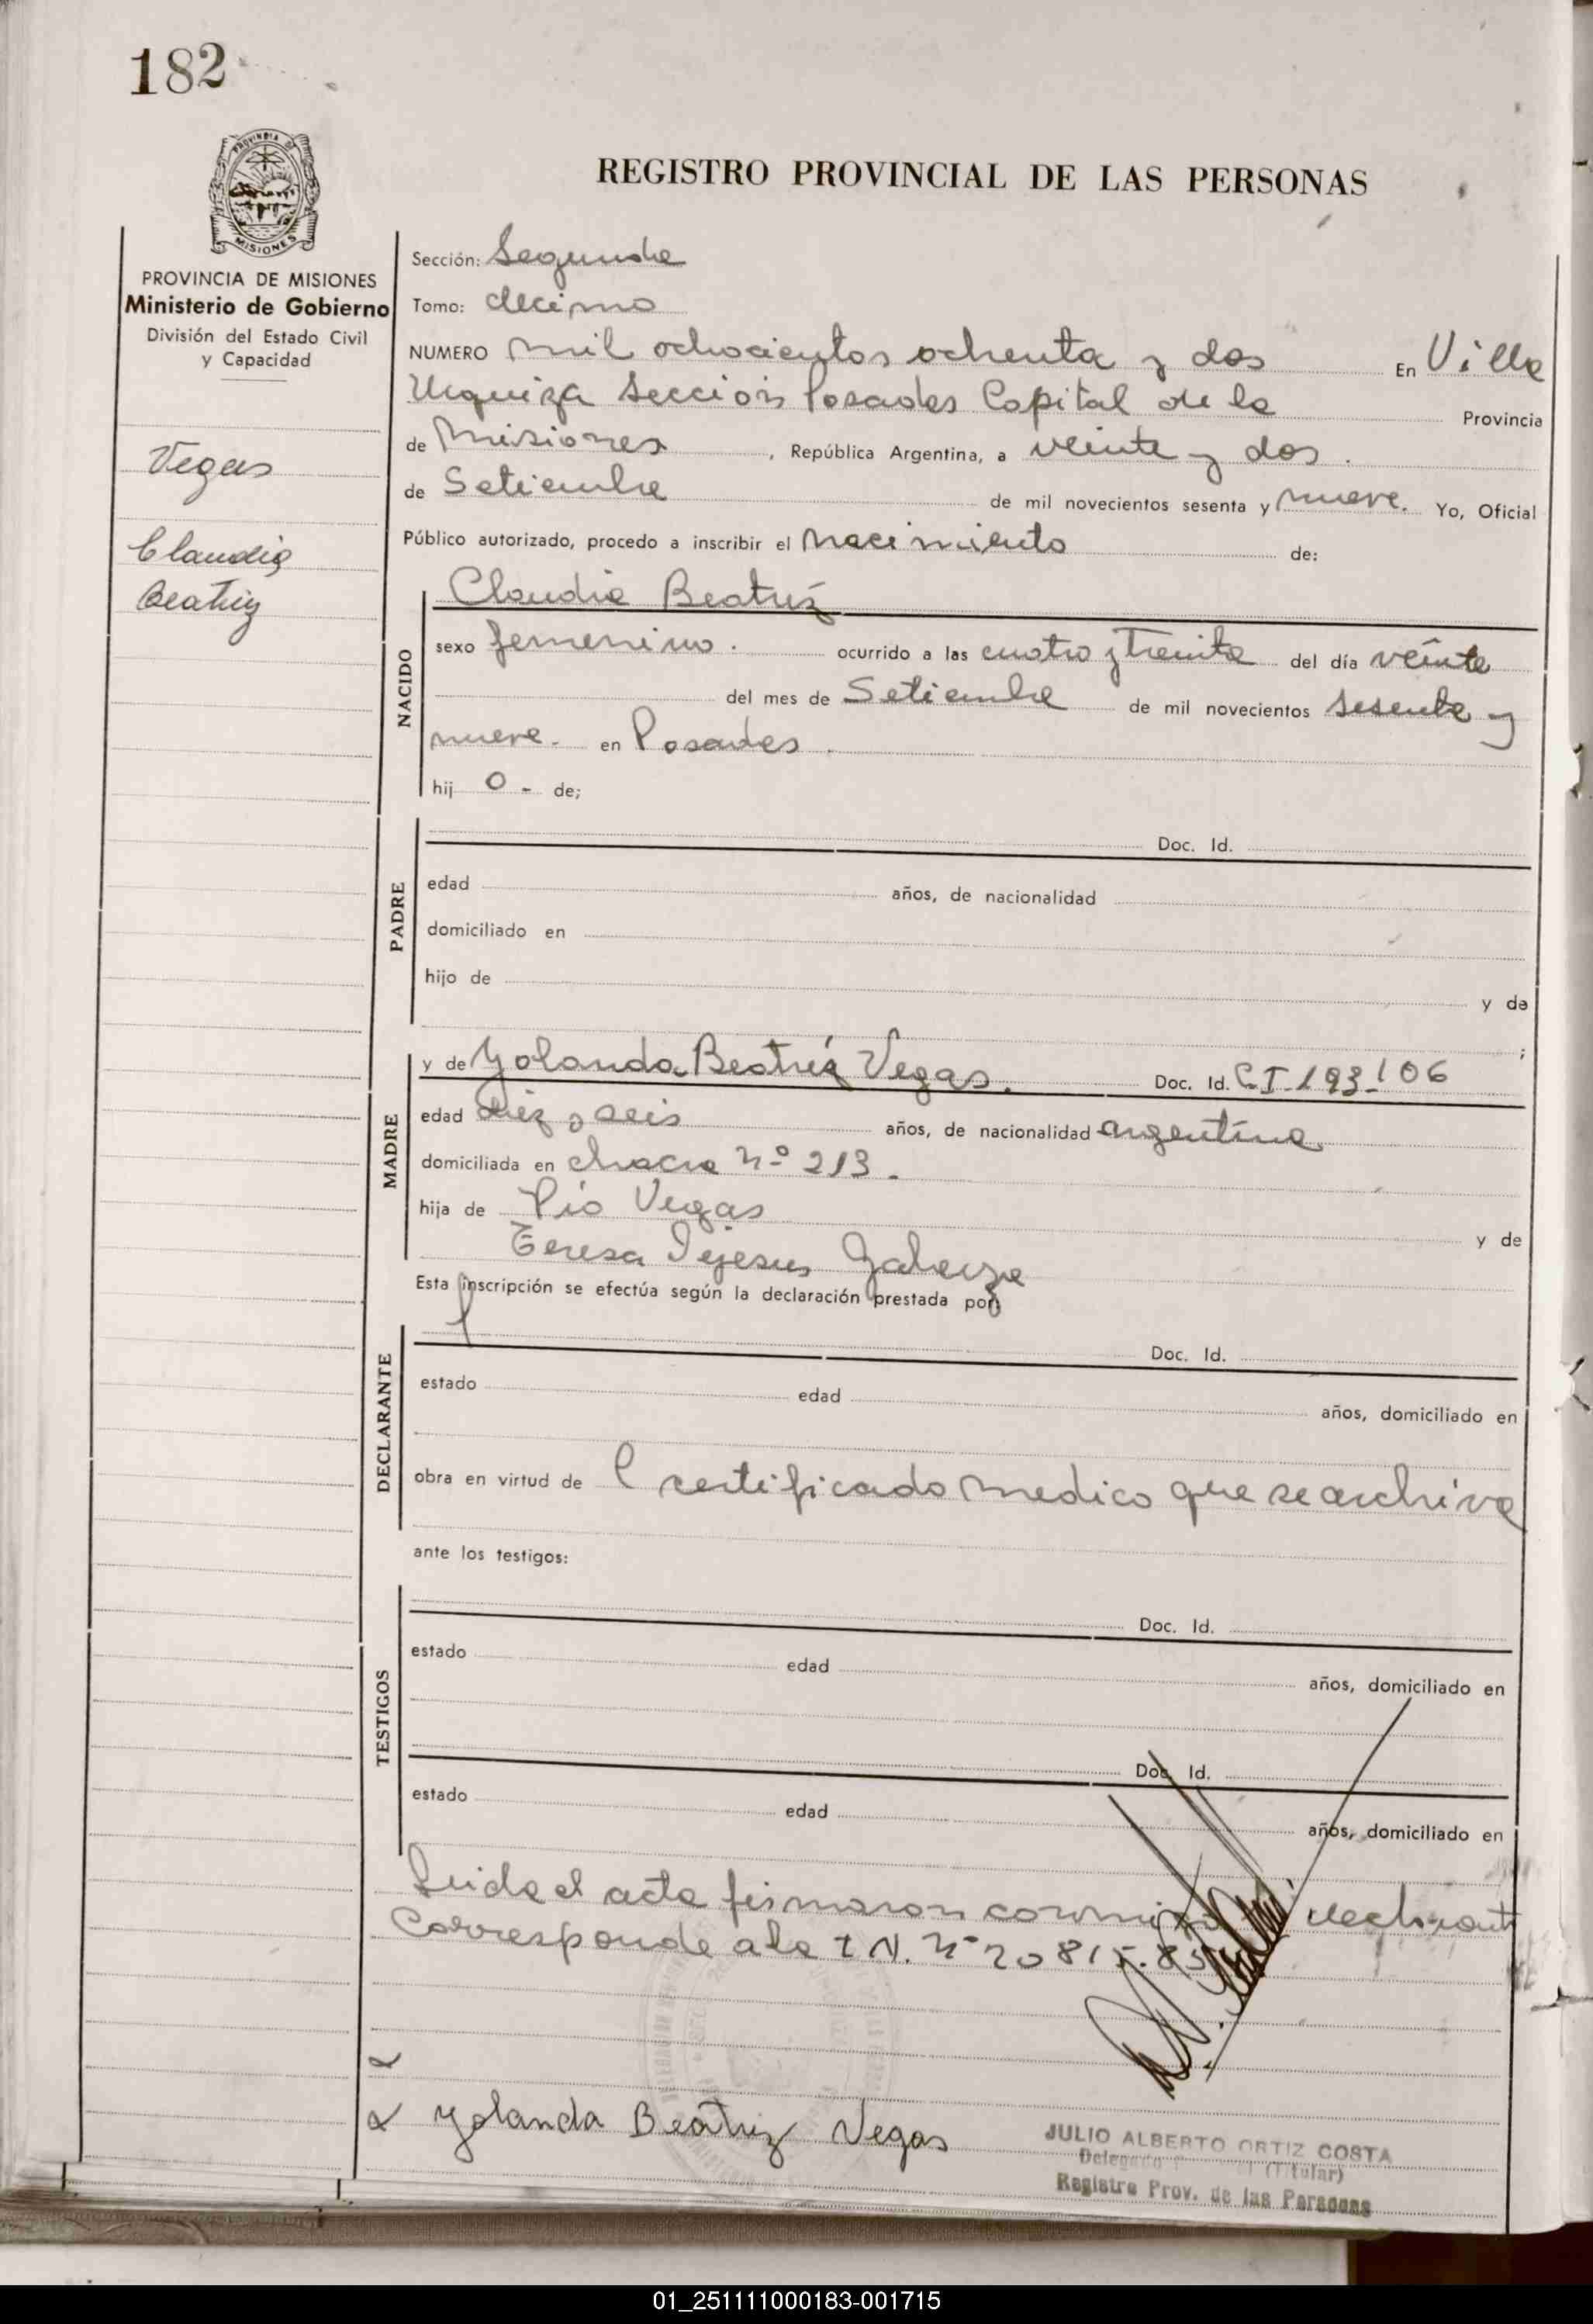 182
PROVINCIA DE
MISIONES
REGISTRO PROVINCIAL DE LAS PERSONAS
PROVINCIA DE MISIONES
Ministerio de Gobierno
División del Estado Civil
y Capacidad
Vegas
Claudia
Beatriz
Sección: Segunda
Tomo: decimo
NUMERO mil ochocientos ochenta y dos En Villa
Urquiza Sección Posadas Capital de la Provincia
de Misiones, República Argentina, a veinte y dos.
de Setiembre de mil novecientos sesenta y nueve. Yo, Oficial
Público autorizado, procedo a inscribir el nacimiento de:
NACIDO
Claudia Beatriz
sexo femenino. ocurrido a las cuatro y treinta del día veinte
del mes de Setiembre de mil novecientos sesenta y
nueve. en Posadas.
hij o - de;
PADRE
Doc. Id.
edad años, de nacionalidad
domiciliado en
hijo de y de
;
MADRE
y de Yolanda Beatriz Vegas. Doc. Id. C.I-193.106
edad diez y seis años, de nacionalidad argentina
domiciliada en chacra Nº 213.
hija de Pio Vegas y de
Teresa Dejesus
Esta inscripción se efectúa según la declaración prestada por:
DECLARANTE
Doc. Id.
estado edad años, domiciliado en
obra en virtud de l certificado medico que se archiva
ante los testigos:
TESTIGOS
Doc. Id.
estado edad años, domiciliado en
Doc. Id.
estado edad años, domiciliado en
Leida el acta firmaron conmigo declarant
Corresponde a la Nº 20815.
Yolanda Beatriz Vegas
JULIO ALBERTO ORTIZ COSTA
(Titular)
Registro Prov. de las Personas
01_251111000183-001715